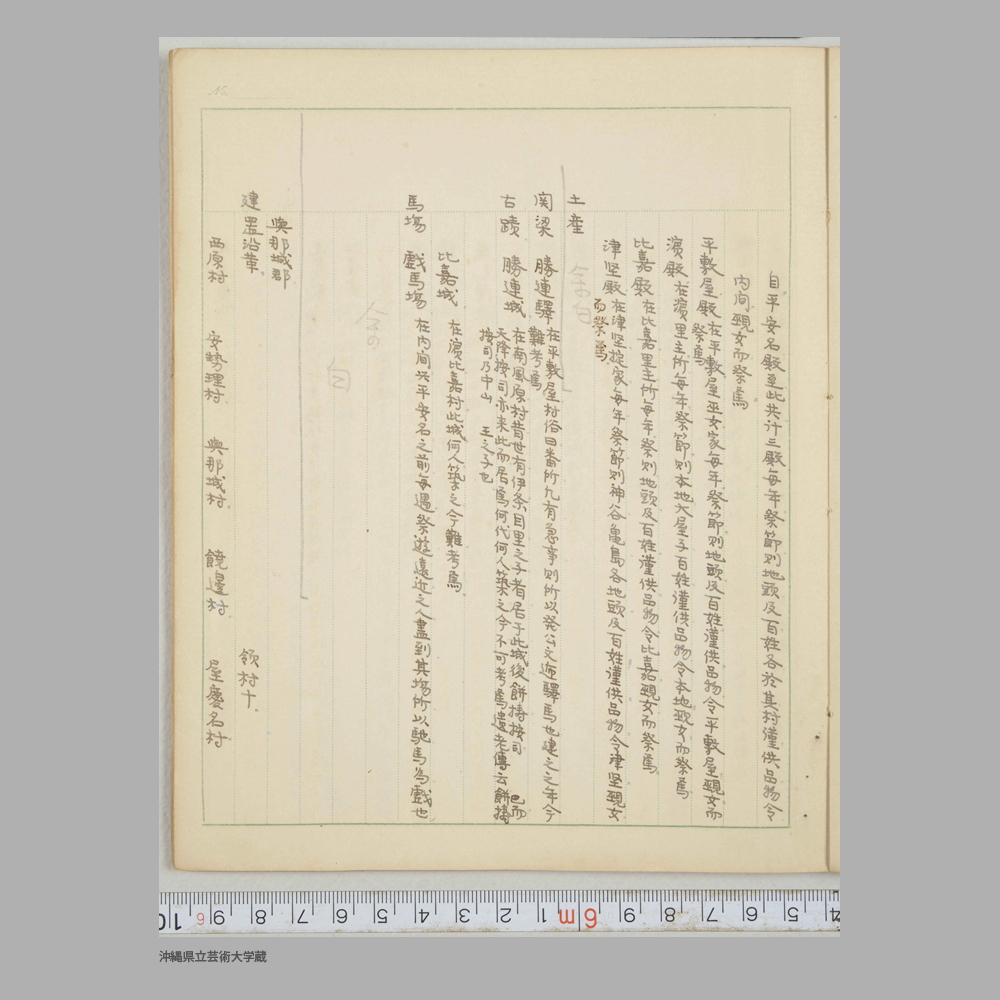 自平安名殿至此共计三殿每年祭節則地頭及百姓各於其村謹供品物令
内间覡女而祭焉
平敷屋殿 在平敷屋巫女家每年祭節則地頭及百姓謹供品物令平敷屋覡女而
祭焉
濱殿 在濱里主所每年祭節則本地大屋子百姓謹供品物令本地覡女而祭焉
比嘉殿 在比嘉里主所每年祭則地頭及百姓謹供品物令比嘉覡女而祭焉
津堅殿 在津堅掟家每年祭節則神谷亀島各地頭及百姓謹供品物令津堅覡女
而祭焉
土産
関梁 勝連驛 在平敷屋村俗曰番所凡有急事則所以発公文遞驛馬也建之之年今
難考焉
古蹟 勝連城 在南風原村昔世有伊条目里之子者居于此城後餅搗按司 已而
天降按司亦来此而居焉何代何人築之今不可考焉遺老傳云餅搗
按司乃中山 王之子也
比嘉城 在濱比嘉村此城何人築之今難考焉
馬場 戲馬場 在内间共平安名之前每遇祭遊遠近之人盡到其場所以馳馬為戲也
與那城郡
建置沿革 領村十
西原村 安勢理村 與那城村 饒邊村 屋慶名村
沖縄県立芸術大学蔵